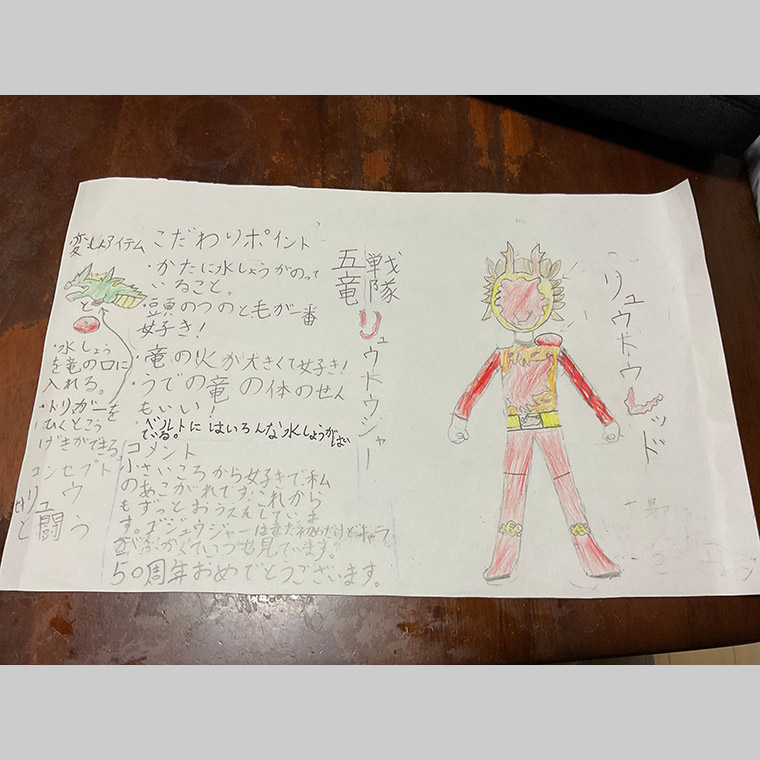 五竜戦隊
リュウトウジャー
リュウトウレッド
変しんアイテム
・水しょう
を竜の口に
入れる。
・トリガーを
ひくとこう
げきができる
コンセプト
リュウ
と闘う
こだわりポイント
・かたに水しょうがのって
いること。
・頭のつのと毛が一番
好き!
・竜の火が大きくて好き!
・うでの竜の体のせん
もいい!
・ベルトにはいろんな水しょうがはい
っている。
コメント
小さいころから好きで、私
のあこがれです。これから
もずっとおうえんしていま
す。ゴジュウジャーはまだ
いつも見ています。
50周年おめでとうございます。